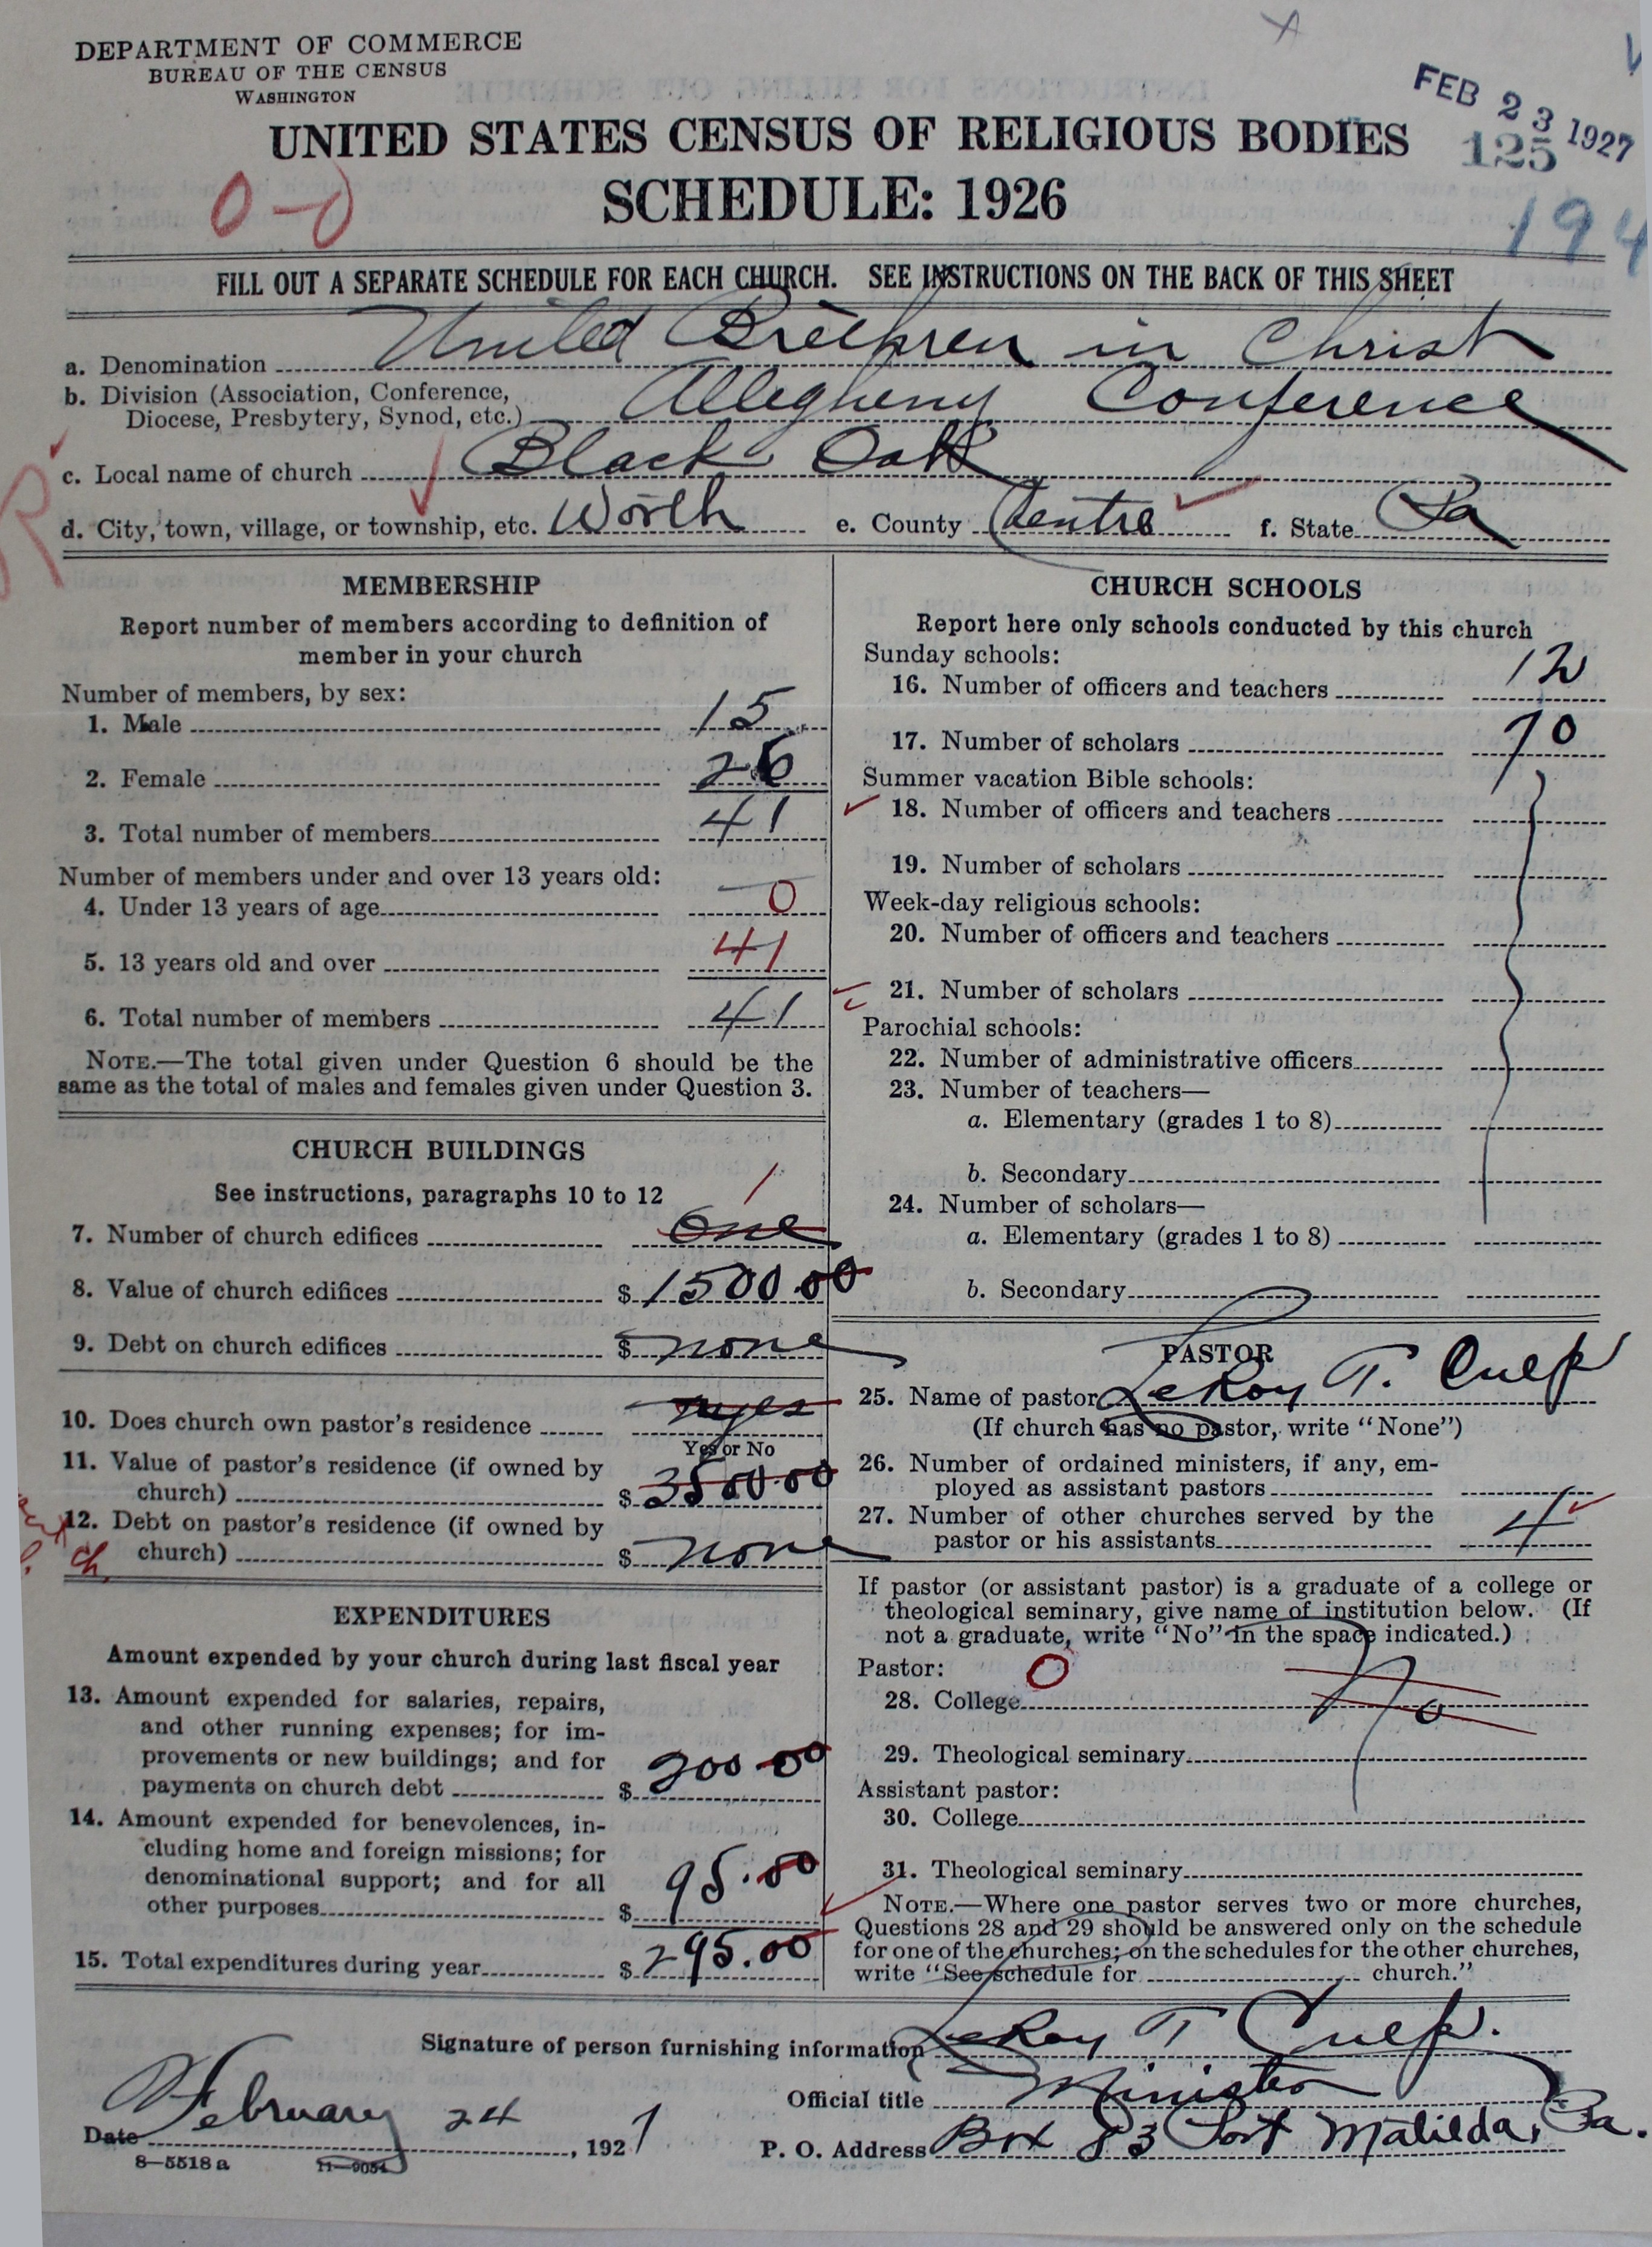 DEPARTMENT OF COMMERCE
BUREAU OF THE CENSUS
WASHINGTON
FEB 23 1927
125
UNITED STATES CENSUS OF RELIGIOUS BODIES
SCHEDULE: 1926
0-0
194
FILL OUT A SEPARATE SCHEDULE FOR EACH CHURCH. SEE INSTRUCTIONS ON THE BACK OF THIS SHEET
a. Denomination United Brethren in Christ
b. Division (Association, Conference,
Diocese, Presbytery, Synod, etc.) Allegheny Conference
c. Local name of church Black Oak
d. City, town, village, or township, etc. Worth e. County Centre f. State Pa
R
MEMBERSHIP
Report number of members according to definition of
member in your church
Number of members, by sex:
1. Male 15
2. Female 26
3. Total number of members 41
Number of members under and over 13 years old:
4. Under 13 years of age 0
5. 13 years old and over 41
6. Total number of members 41
NOTE.—The total given under Question 6 should be the
same as the total of males and females given under Question 3.
CHURCH BUILDINGS
See instructions, paragraphs 10 to 12
1
7. Number of church edifices One
8. Value of church edifices $ 1500.00
9. Debt on church edifices $ none
10. Does church own pastor's residence yes
Yes or No
11. Value of pastor's residence (if owned by
church) $ 3500.00
12. Debt on pastor's residence (if owned by
church) $ none
ch.
EXPENDITURES
Amount expended by your church during last fiscal year
13. Amount expended for salaries, repairs,
and other running expenses; for im-
provements or new buildings; and for
payments on church debt $ 200.00
14. Amount expended for benevolences, in-
cluding home and foreign missions; for
denominational support; and for all
other purposes $ 95.00
15. Total expenditures during year $ 295.00
CHURCH SCHOOLS
Report here only schools conducted by this church
Sunday schools:
16. Number of officers and teachers 12
17. Number of scholars 70
Summer vacation Bible schools:
18. Number of officers and teachers
19. Number of scholars
Week-day religious schools:
20. Number of officers and teachers
21. Number of scholars
Parochial schools:
22. Number of administrative officers
23. Number of teachers—
a. Elementary (grades 1 to 8)
b. Secondary
24. Number of scholars—
a. Elementary (grades 1 to 8)
b. Secondary
PASTOR
25. Name of pastor LeRoy T. Culp
(If church has no pastor, write "None")
26. Number of ordained ministers, if any, em-
ployed as assistant pastors
27. Number of other churches served by the
pastor or his assistants 4
If pastor (or assistant pastor) is a graduate of a college or
theological seminary, give name of institution below. (If
not a graduate, write "No" in the space indicated.)
Pastor: 0
28. College No
29. Theological seminary
Assistant pastor:
30. College
31. Theological seminary
NOTE.—Where one pastor serves two or more churches,
Questions 28 and 29 should be answered only on the schedule
for one of the churches; on the schedules for the other churches,
write "See schedule for church."
Signature of person furnishing information LeRoy T Culp.
Official title Minister
Date February 24, 1927
P. O. Address Box 83 Port Matilda, Pa.
8—5518 a 11—9054